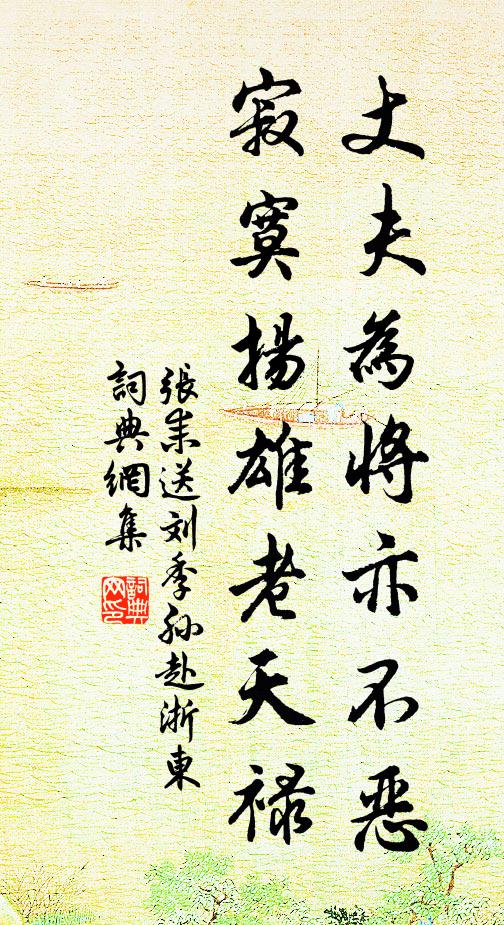 丈夫為將亦不恶
寂寞揚雄老天禄
張耒送刘季孙赴浙東
詞典網集
詞典
网印